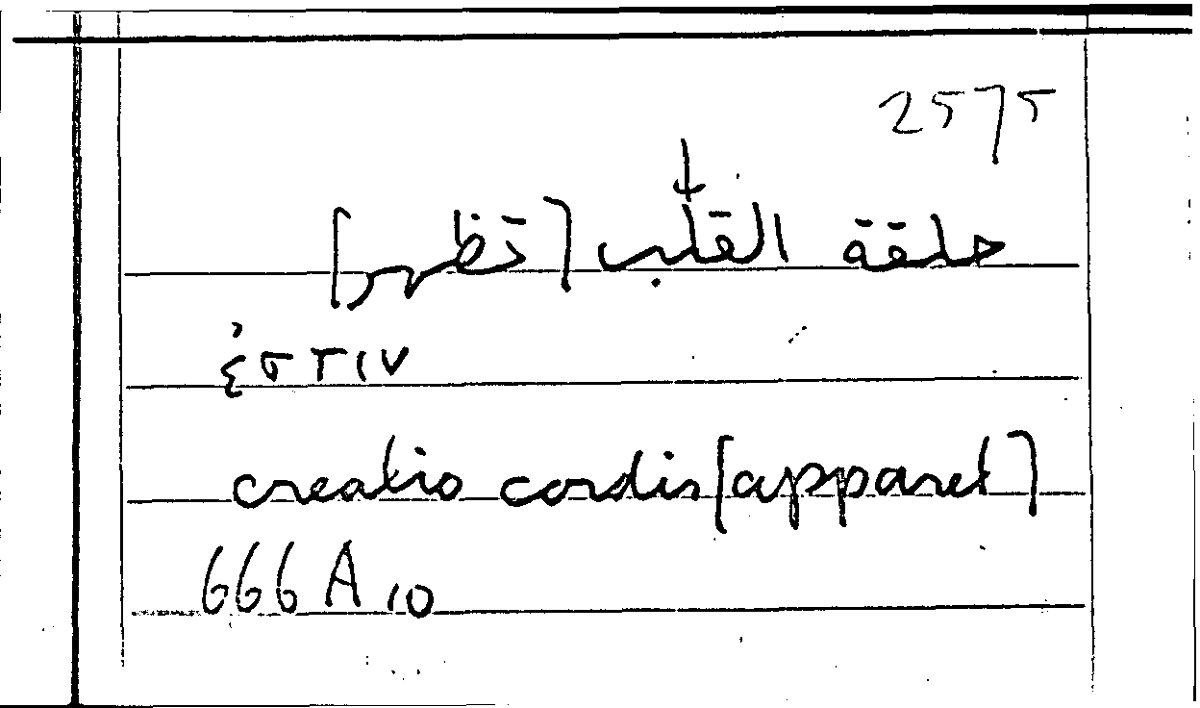 2575
حلقة القلب [تظهر]
creatio cordis [apparet]
666 A 10